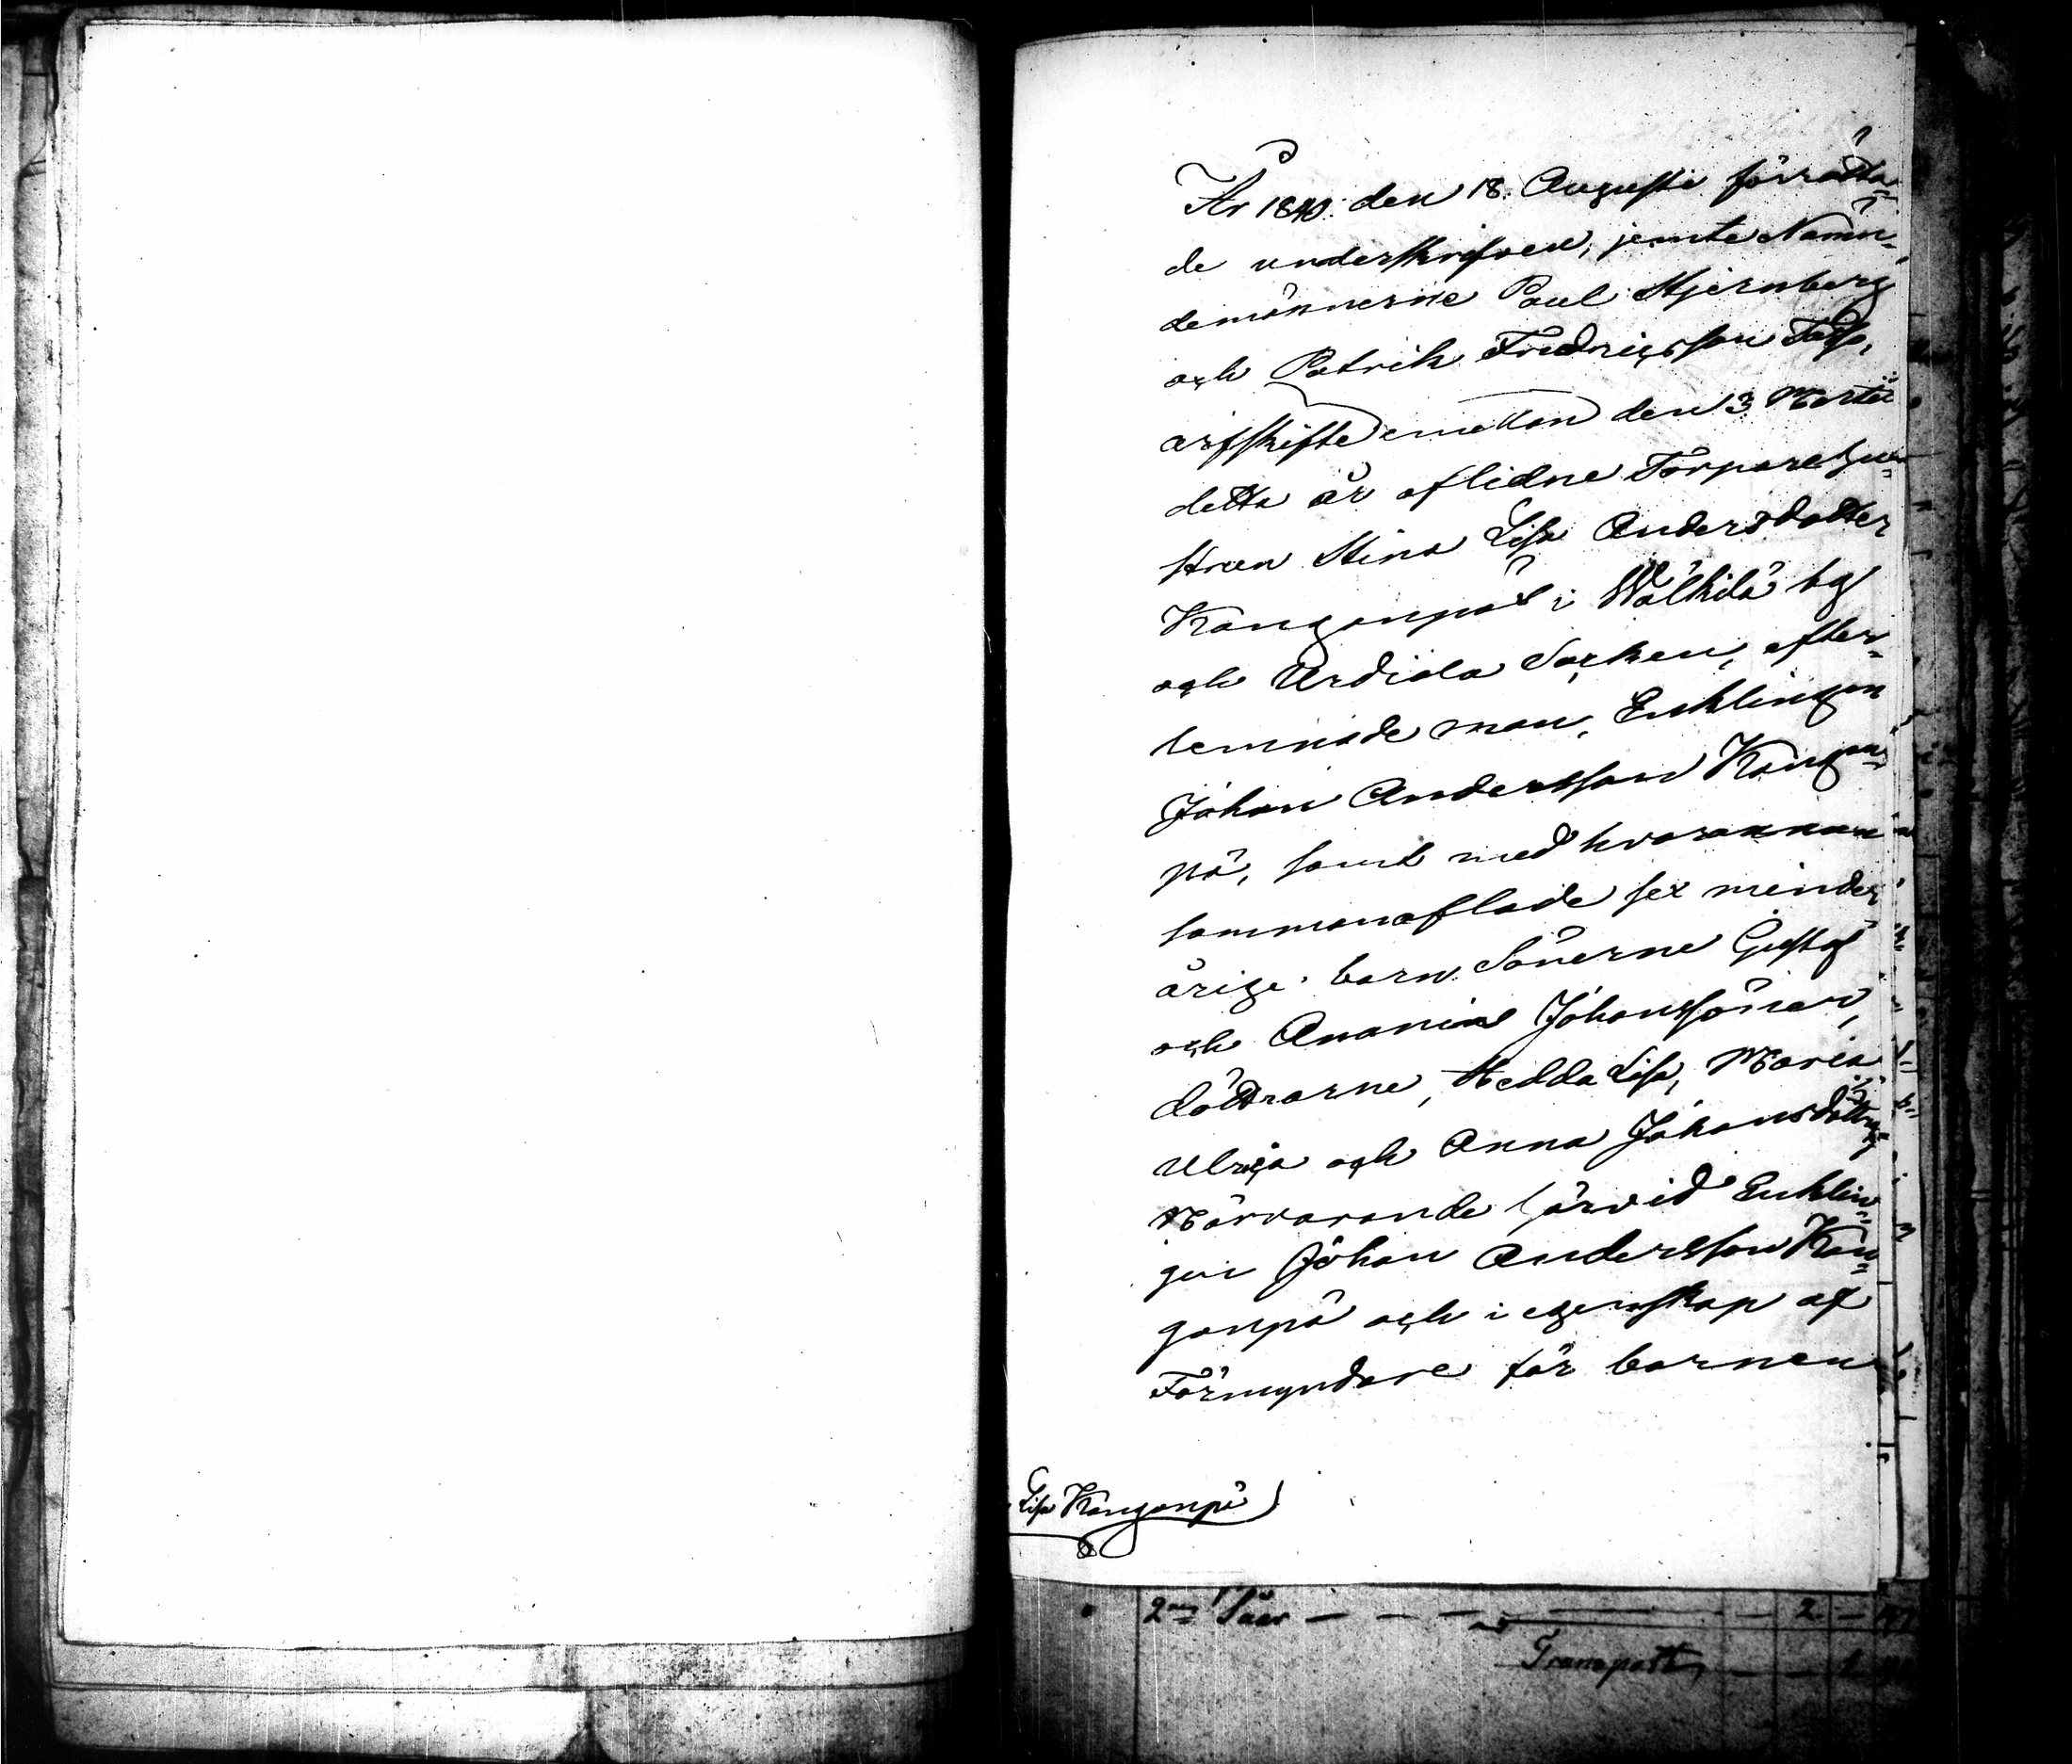 År 1840 den 18 Augusti förrätta=
de underskrifven, jemte Nämn=
demännerne Paul Stjernberg
och Patrik Fredricsson
arfskifte emellan den 3 Martii
detta år aflidne Torparehu=
strun Stina Lisa Andersdotter
Kangonpä i Wälkilä by
och Urdiala Socken, efter=
lemnade man, Enklingen
Johan Andersson Kangon=
pä, samt med hvarannan
sammanaflade sex minder
årige barn Sönerne Gustaf
och Ananias Johanssöner,
döttrarne, Hedda Lisa, Maria
Ulrica och Anna Johansdöttrar
Närvarande härvid Enklin=
gen Johan Andersson Kan=
gonpä och i egenskap af
Förmyndare för barnen
Lisa Kangonpä
2 Söer — — — 2 —
Transport — —